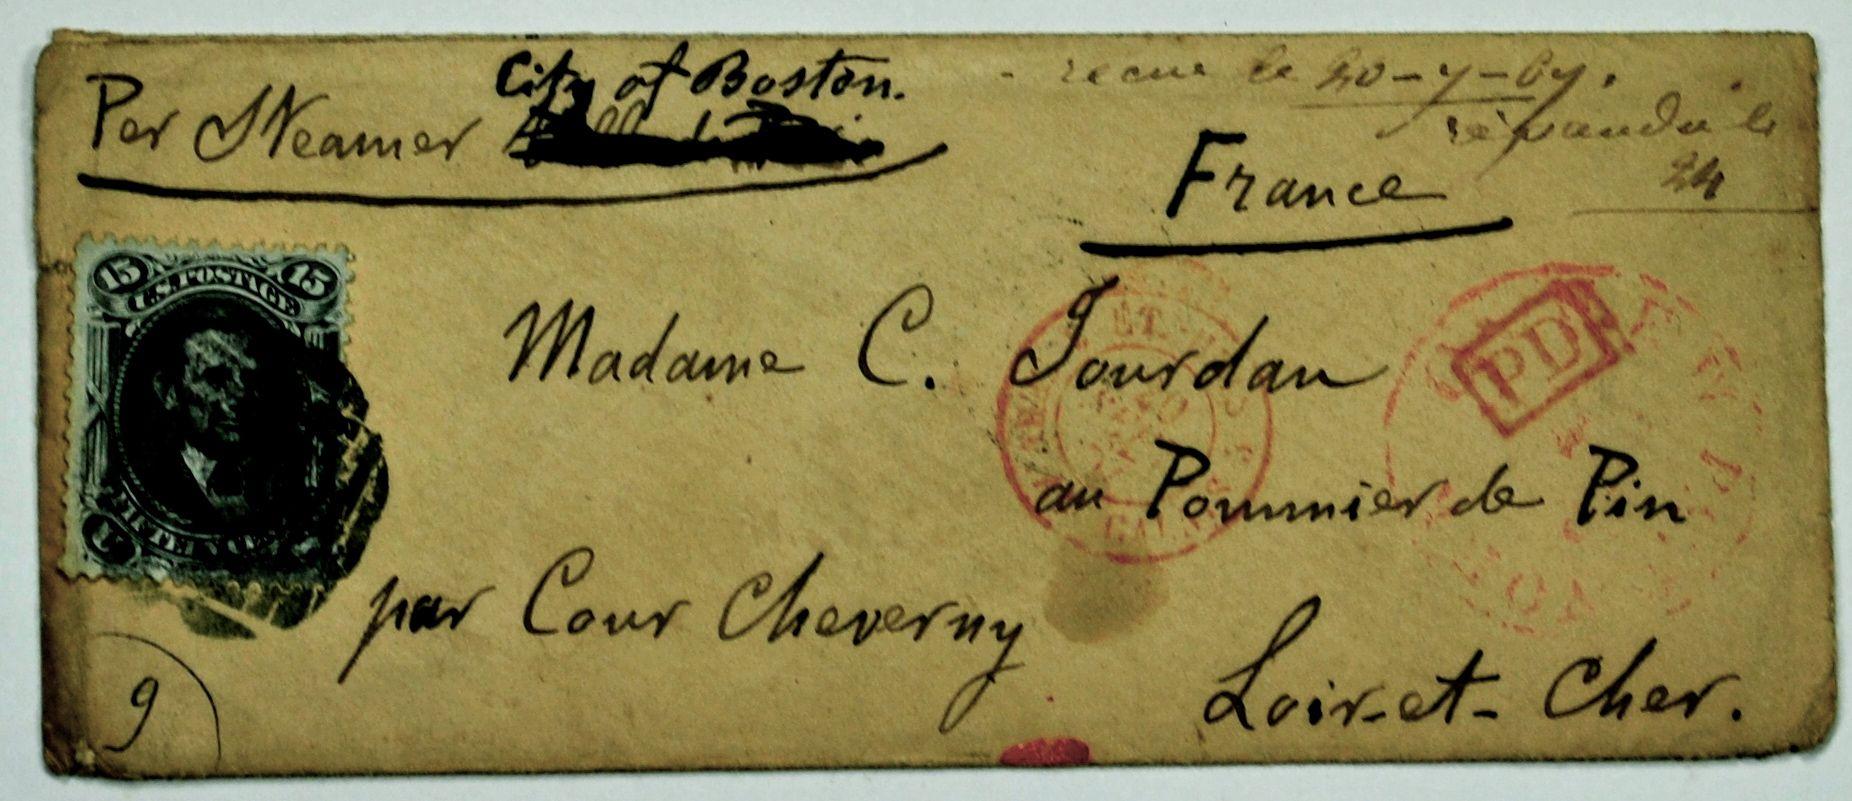 City of Boston.
Per Steamer
recue le 20-7-67.
répondu le
24
France
15 U.S. POSTAGE 15
Madame C. Jourdan
ET
PD
au Pommier de Pin
CALAIS
par Cour Cheverny
Loir-et-Cher.
9